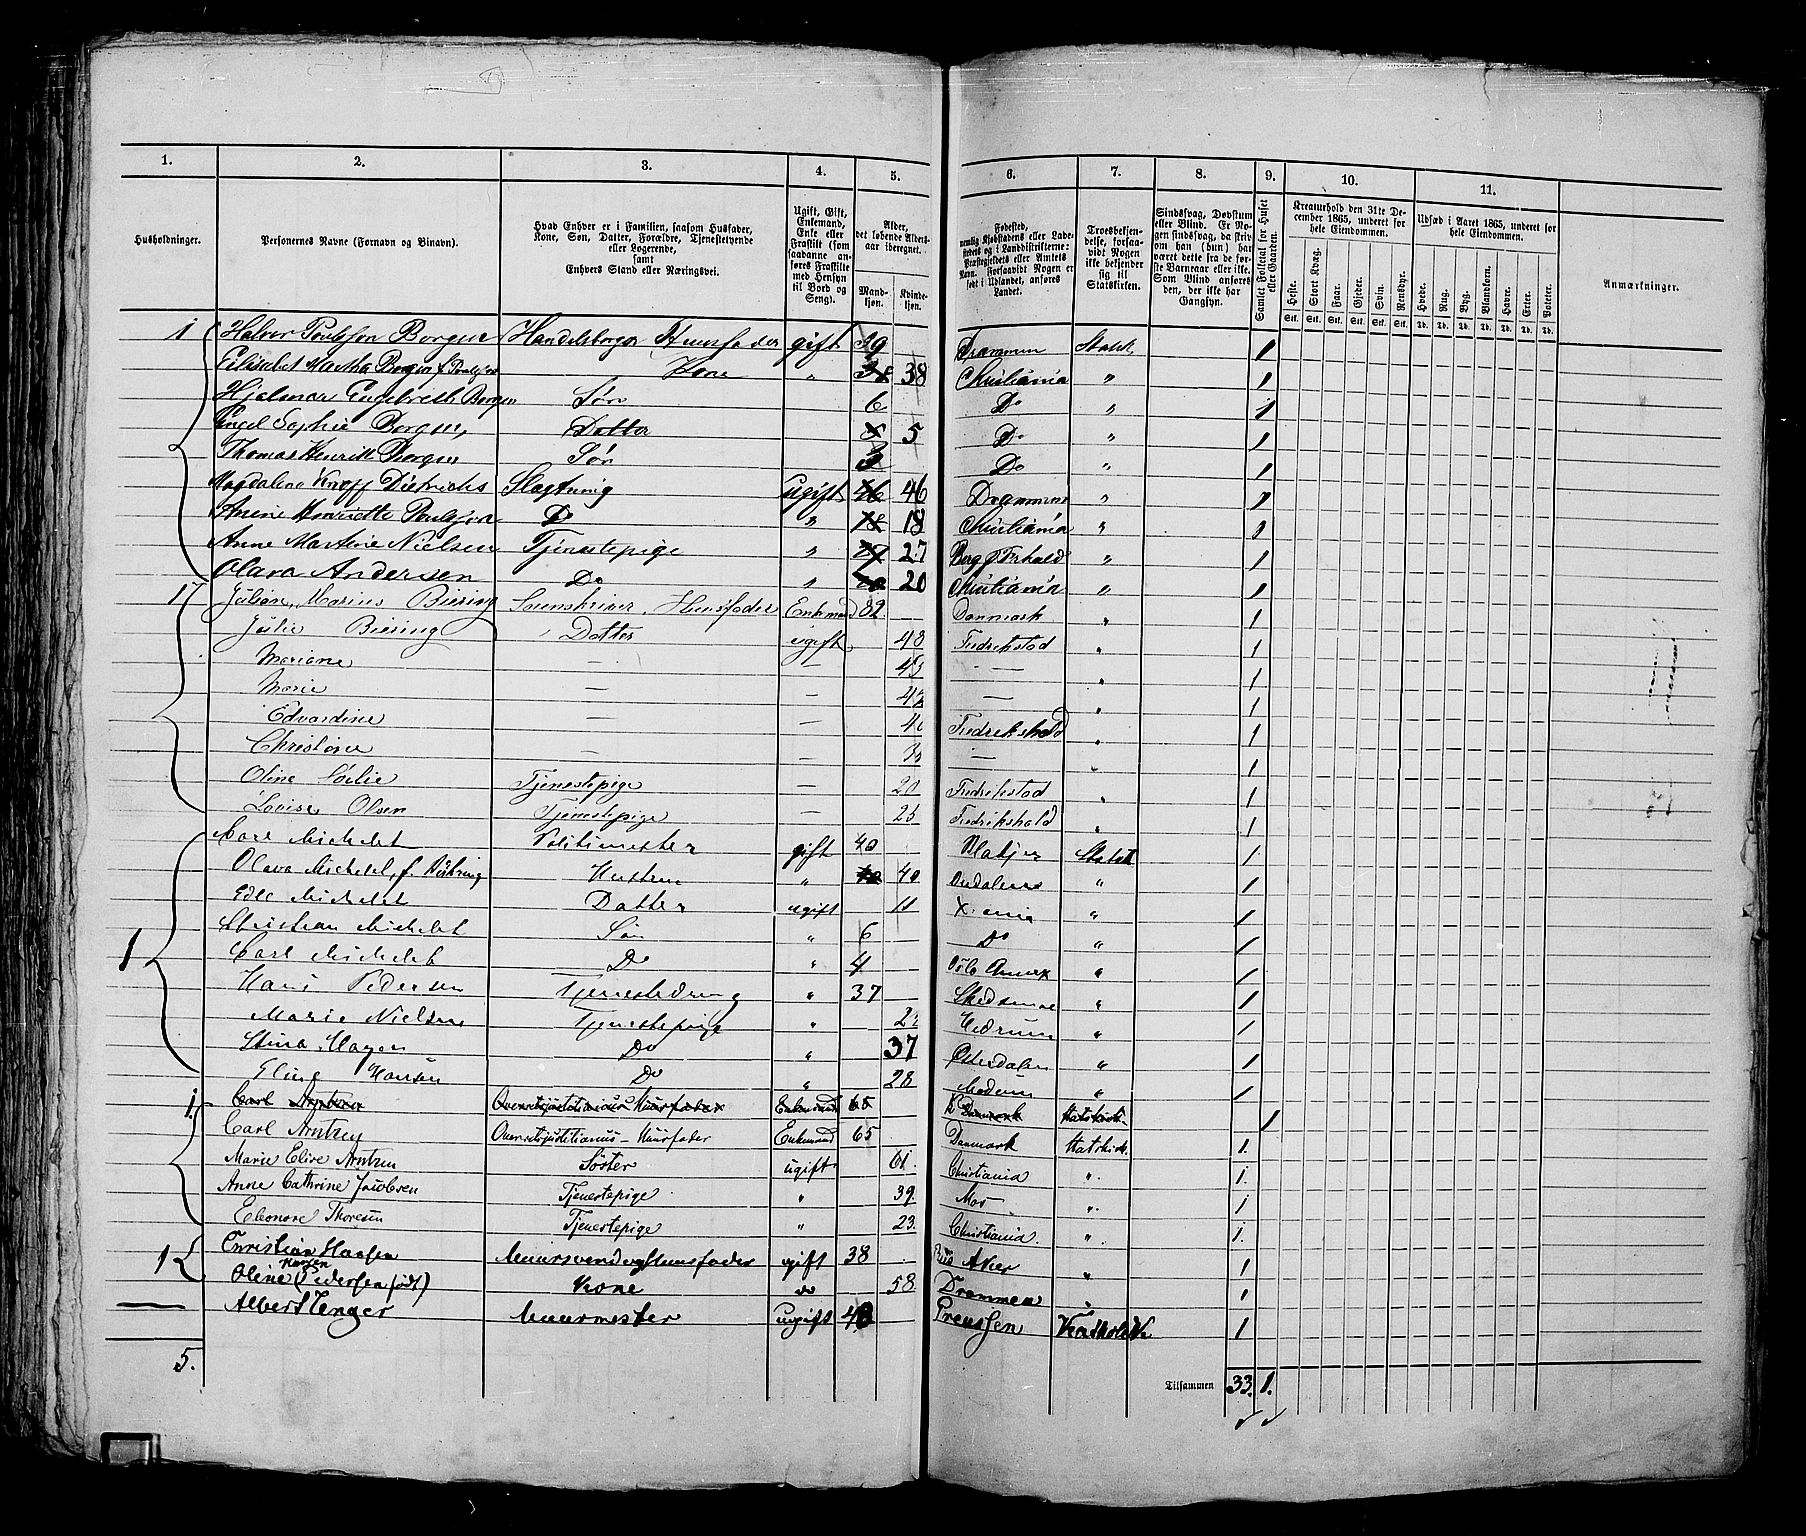 1. 2. 3. 4. 5. 6. 7. 8. 9. 10. 11.
Husholdninger.
Personernes Navne (Fornavn og Binavn).
Hvad Enhver er i Familien, saasom Husfader, Kone, Søn, Datter, Forældre, Tjenestetyende eller Logerende, samt Enhvers Stand eller Næringsvei.
Ugift, Gift, Enkemand, Enke eller Fraskilt (som saadanne anføres Fraskilte med Hensyn til Bord og Seng).
Alder, det løbende Aldersaar iberegnet.
Mandkjøn. Kvindekjøn.
Fødested, nemlig Kjøbstadens eller Ladestedets og i Landdistrikterne: Præstegjeldets eller Amtets Navn. Forsaavidt Nogen er født i Udlandet, anføres Landet.
Troesbekjendelse, forsaavidt Nogen ikke bekjender sig til Statskirken.
Sindssvag, Døvstum eller Blind. Er Nogen sindssvag, da skrives om han (hun) har været dette fra de første Barneaar eller ikke. Som Blind anføres den, der ikke har Gangsyn.
Samlet Folketal for Huset eller Gaarden.
Kreaturhold den 31te December 1865, underet for hele Eiendommen.
Heste. Stort Kvæg. Faar. Gjeder. Svin. Rensdyr.
Stk. Stk. Stk. Stk. Stk. Stk.
Udsæd i Aaret 1865, underet for hele Eiendommen.
Hvede. Rug. Byg. Blandkorn. Havre. Erter. Poteter.
Td. Td. Td. Td. Td. Td. Td.
Anmærkninger.
1 Halvor Poulsson Borgen Handelsborger Huusfader gift 39 Drammen Statsk 1
Elisabet Martha Borgen f. Poulsson Kone " 38 Christiania " 1
Hjalmar Engebreth Borgen Søn 6 Do " 1
Engel Sophie Borgen Datter 5 Do " 1
Thomas Henrik Borgen Søn 3 Do " 1
Magdalene Dietrichs Slægtning Ugift 46 Drammen " 1
Henriette Poulsson Do " 18 Christiania " 1
Anne Martine Nielsen Tjenestepige " 27 Berg Frhald " 1
Olava Andersen Do " 20 Christiania " 1
1 Julian Marius Biering Sorenskriver, Huusfader Enkemand 82 Danmark " 1
Julie Biering Datter ugift 48 Fredrikstad " 1
Mariane — — — " 1
Marie — — — " 1
Edvardine — — Fredrikshald " 1
Christine — — " 1
Oline Tjenestepige — 20 Fredrikstad " 1
Lovise Olsen Tjenestepige — 25 Fredrikshald " 1
1 Carl Michelet Politimester gift 40 Statsk 1
Olava Michelet, f. Kone " 40 Guddalens " 1
Edle Michelet Datter ugift 11 X.ania " 1
Christian Michelet Søn " 6 Do " 1
Carl Michelet Do " 4 Oslo Annex " 1
Hans Pedersen Tjenestedreng " 37 Skedsmoe " 1
Marie Nielsen Tjenestepige " Hedrum " 1
Stina Do " 37 Østerdalen " 1
Eline Hansen Do " 28 Modum " 1
1 Carl Arntzen Overretsjustitiarius Huusfader Enkemand 65 Danmark Statskirk. 1
Carl Arntzen Overretsjustitiarius - Huusfader Enkemand 65 Danmark Statskirk. 1.
Marie Elise Arntzen Søster ugift 61. Christiania " 1.
Anne Cathrine Jacobsen Tjenestepige " 39. Mos " 1
Eleonore Thoresen Tjenestepige " 23. Christiania " 1.
1 Christian Hansen Muursvend og Huusfader gift 38 Aker " 1
Oline Hansen (Pedersen født) Kone do 58 Drammen " 1
— Albert Zenger Muurmester ugift 40 Preussen Katholsk 1
5. Tilsammen 33. 1.